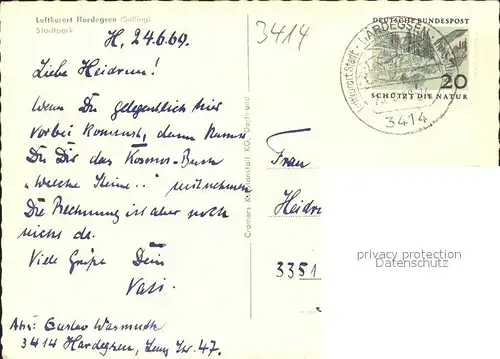 Luftkurort Hardegsen (Solling)
Stadtpark
H, 24.6.69.
Liebe Heidrun!
Wenn Du gelegentlich hier
vorbei kommst, dann kannst
Du Dir das Kosmos-Buch
"Welche Steine.." mitnehmen
Die Rechnung ist aber noch
nicht da.
Viele Grüße Dein
Vati.
Abs: Gustav Warmuth
3414 Hardegsen, Str. 47.
Cramers Kunstanstalt KG, Dortmund
3414
DEUTSCHE BUNDESPOST
20
SCHÜTZT DIE NATUR
HARDEGSEN
3414
Frau
Heidrun
3351
privacy protection
Datenschutz